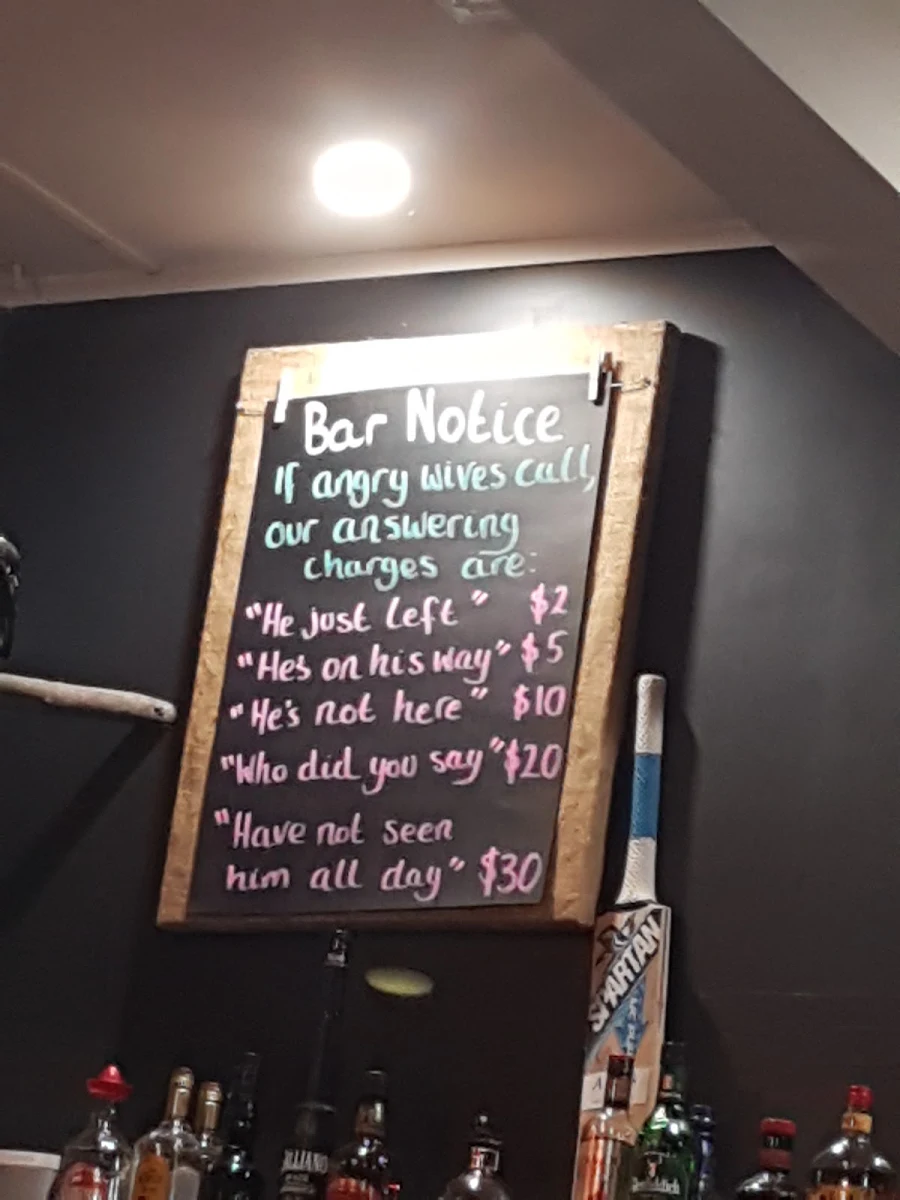 Bar Notice
If angry wives call,
our answering
charges are:
"He just left" $2
"Hes on his way" $5
"He's not here" $10
"Who did you say" $20
"Have not seen
him all day" $30
SPARTAN